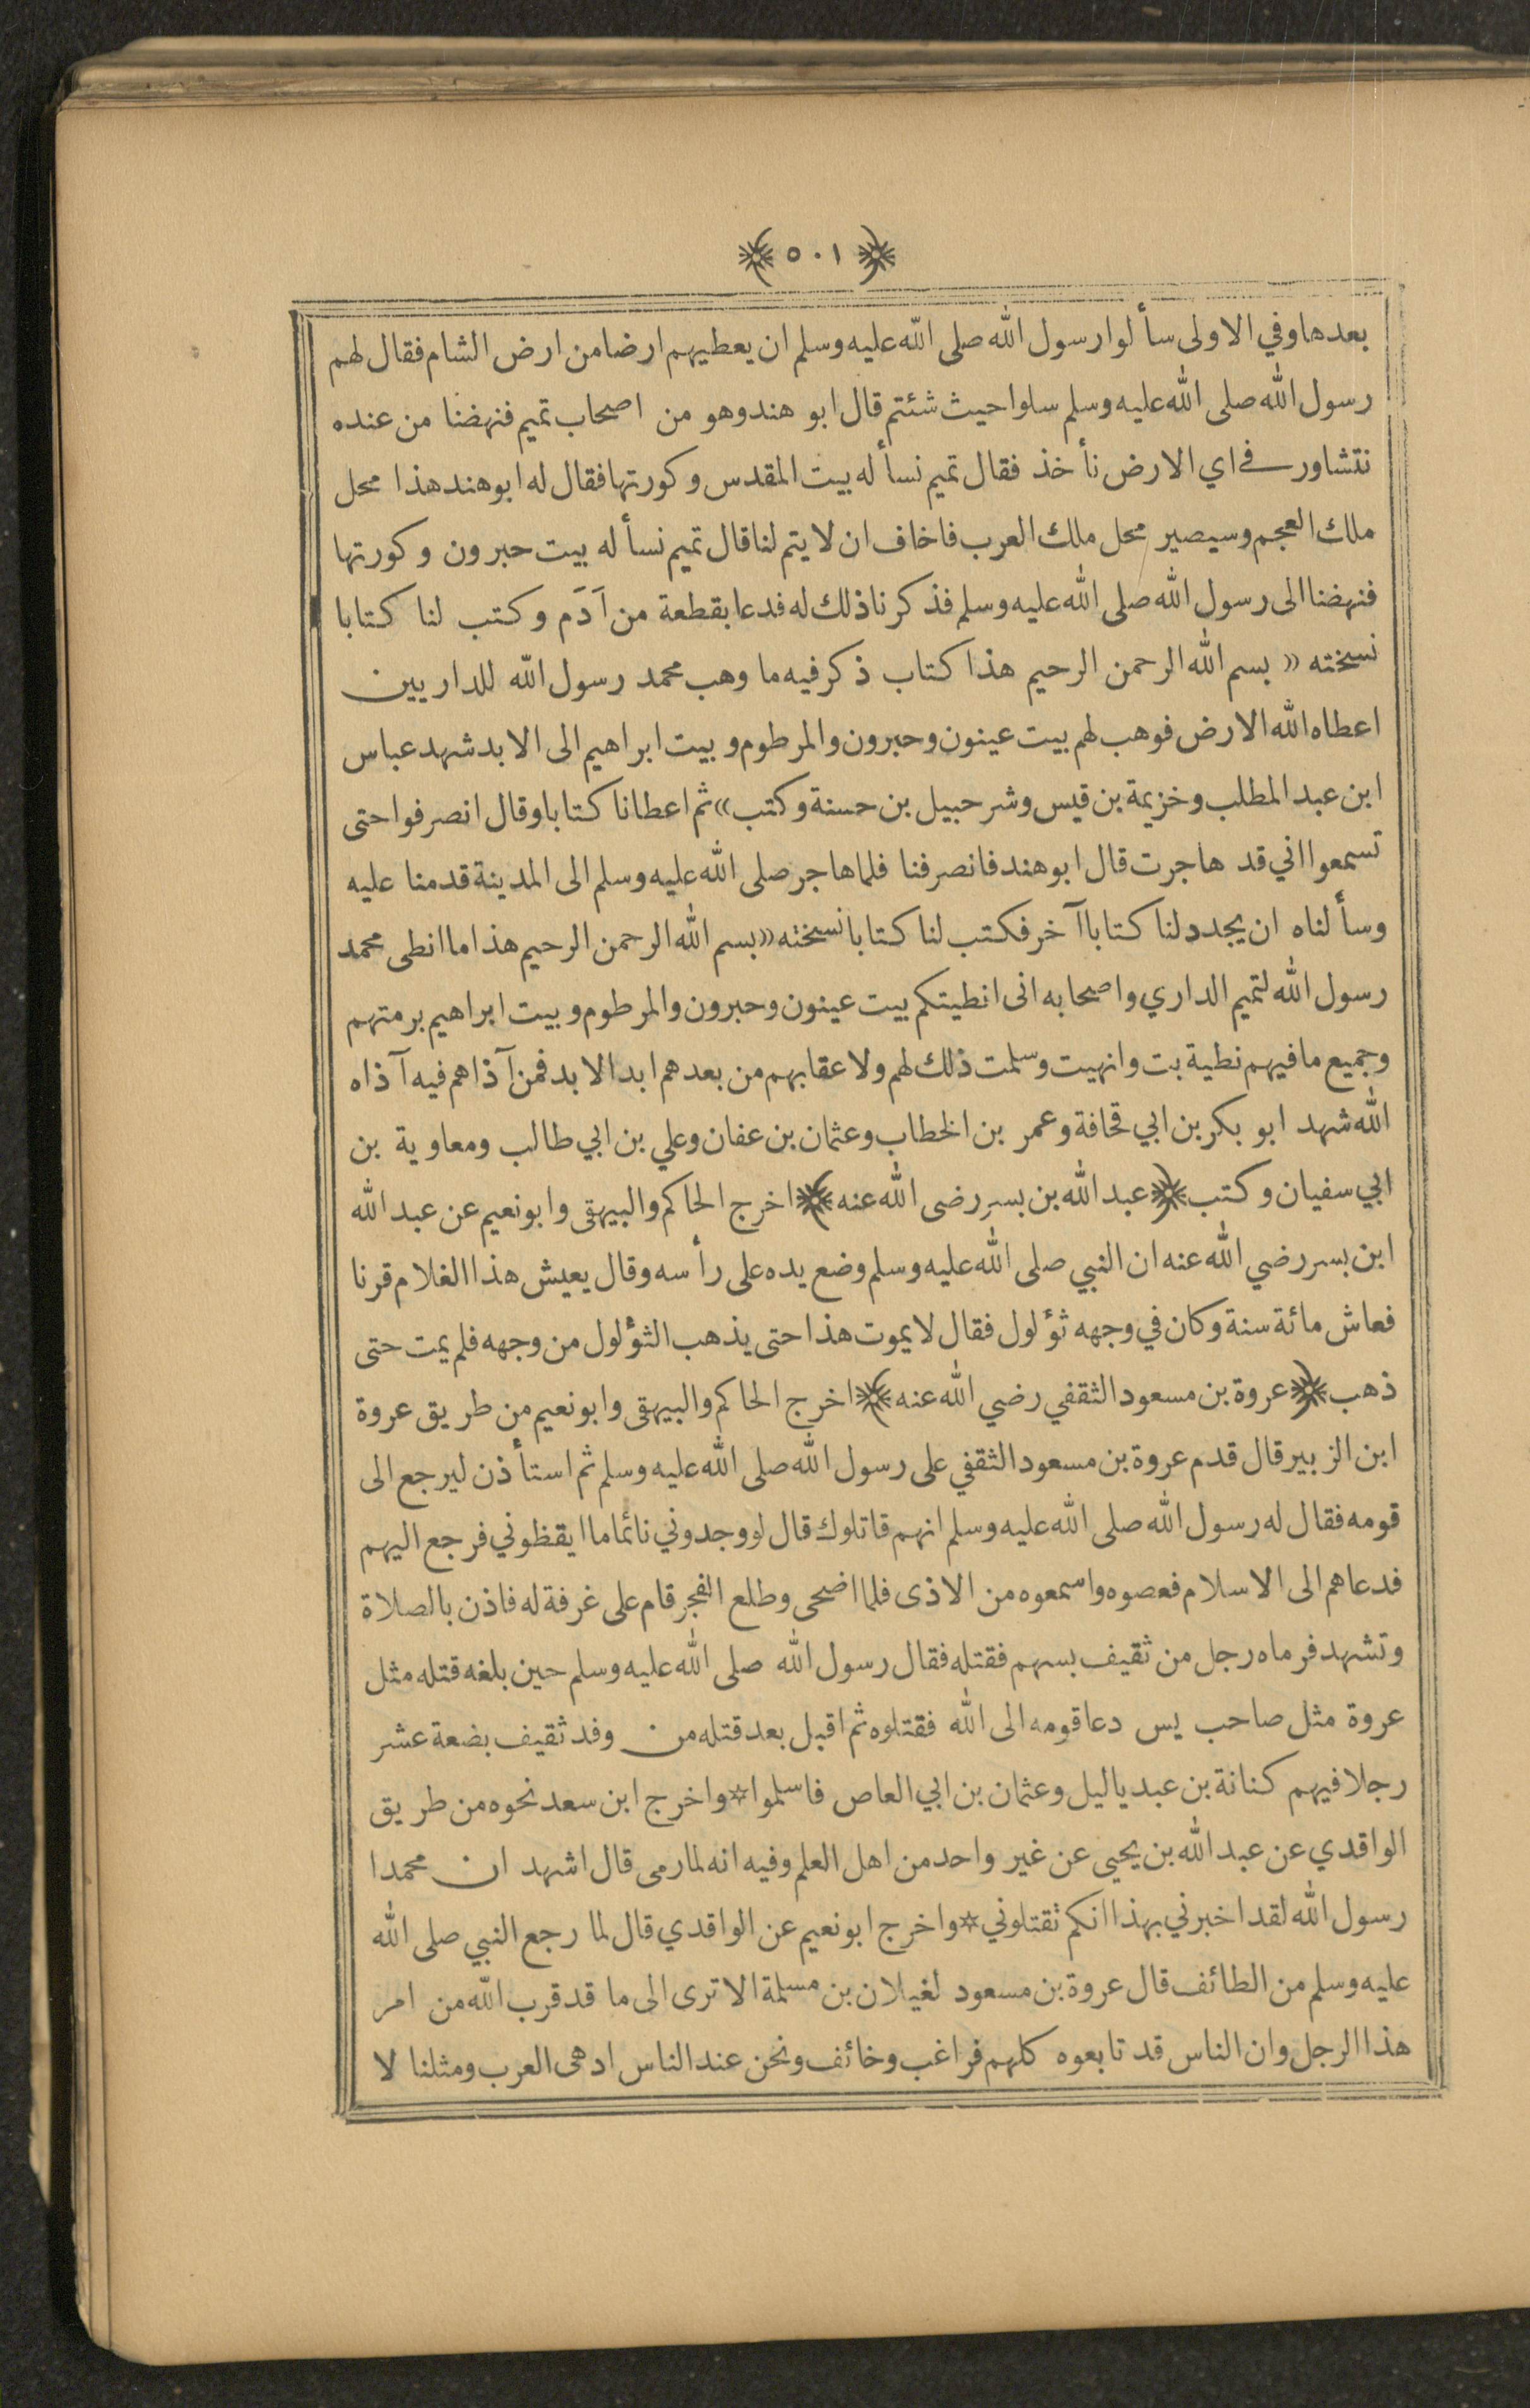 ﴿٥٠١﴾
بعدها وفي الاولى سألوا رسول الله صلى الله عليه وسلم ان يعطيهم ارضا من ارض الشام فقال لهم
رسول الله صلى الله عليه وسلم سلوا حيث شئتم قال ابو هند وهو من اصحاب تميم فنهضنا من عنده
نتشاور في اي الارض نأخذ فقال تميم نسأله بيت المقدس وكورتها فقال له ابو هند هذا محل
ملك العجم وسيصير محل ملك العرب فاخاف ان لا يتم لنا قال تميم نسأله بيت حبرون وكورتها
فنهضنا الى رسول الله صلى الله عليه وسلم فذكرنا ذلك له فدعا بقطعة من اَدَم وكتب لنا كتابا
نسخته «بسم الله الرحمن الرحيم هذا كتاب ذكر فيه ما وهب محمد رسول الله للداريين
اعطاه الله الارض فوهب لهم بيت عينون وحبرون والمرطوم وبيت ابراهيم الى الابد شهد عباس
ابن عبد المطلب وخزيمة بن قيس وشرحبيل بن حسنة وكتب» ثم اعطانا كتابا وقال انصرفوا حتى
تسمعوا اني قد هاجرت قال ابو هند فانصرفنا فلما هاجر صلى الله عليه وسلم الى المدينة قدمنا عليه
وسألناه ان يجدد لنا كتابا آخر فكتب لنا كتابا نسخته «بسم الله الرحمن الرحيم هذا ما انطى محمد
رسول الله لتميم الداري واصحابه انى انطيتكم بيت عينون وحبرون والمرطوم وبيت ابراهيم برمتهم
وجميع ما فيهم نطية بت وانهيت وسلمت ذلك لهم ولاعقابهم من بعدهم ابد الابد فمن آذاهم فيه آذاه
الله شهد ابو بكر بن ابي قحافة وعمر بن الخطاب وعثمان بن عفان وعلي بن ابي طالب ومعاوية بن
ابي سفيان وكتب ﴿عبد الله بن بسر رضى الله عنه﴾ اخرج الحاكم والبيهقى وابو نعيم عن عبد الله
ابن بسر رضي الله عنه ان النبي صلى الله عليه وسلم وضع يده على رأسه وقال يعيش هذا الغلام قرنا
فعاش مائة سنة وكان في وجهه ثؤلول فقال لا يموت هذا حتى يذهب الثؤلول من وجهه فلم يمت حتى
ذهب ﴿عروة بن مسعود الثقفي رضي الله عنه﴾ اخرج الحاكم والبيهقى وابو نعيم من طريق عروة
ابن الزبير قال قدم عروة بن مسعود الثقفي على رسول الله صلى الله عليه وسلم ثم استأذن ليرجع الى
قومه فقال له رسول الله صلى الله عليه وسلم انهم قاتلوك قال لو وجدوني نائما ما ايقظوني فرجع اليهم
فدعاهم الى الاسلام فعصوه واسمعوه من الاذى فلما اضحى وطلع الفجر قام على غرفة له فاذن بالصلاة
وتشهد فرماه رجل من ثقيف بسهم فقتله فقال رسول الله صلى الله عليه وسلم حين بلغه قتله مثل
عروة مثل صاحب يس دعا قومه الى الله فقتلوه ثم اقبل بعد قتله من وفد ثقيف بضعة عشر
رجلا فيهم كنانة بن عبد ياليل وعثمان بن ابي العاص فاسلموا * واخرج ابن سعد نحوه من طريق
الواقدي عن عبد الله بن يحيى عن غير واحد من اهل العلم وفيه انه لما رمى قال اشهد ان محمدا
رسول الله لقد اخبرني بهذا انكم تقتلوني * واخرج ابو نعيم عن الواقدي قال لما رجع النبي صلى الله
عليه وسلم من الطائف قال عروة بن مسعود لغيلان بن مسلمة الا ترى الى ما قد قرب الله من امر
هذا الرجل وان الناس قد تابعوه كلهم فراغب وخائف ونحن عند الناس ادهى العرب ومثلنا لا